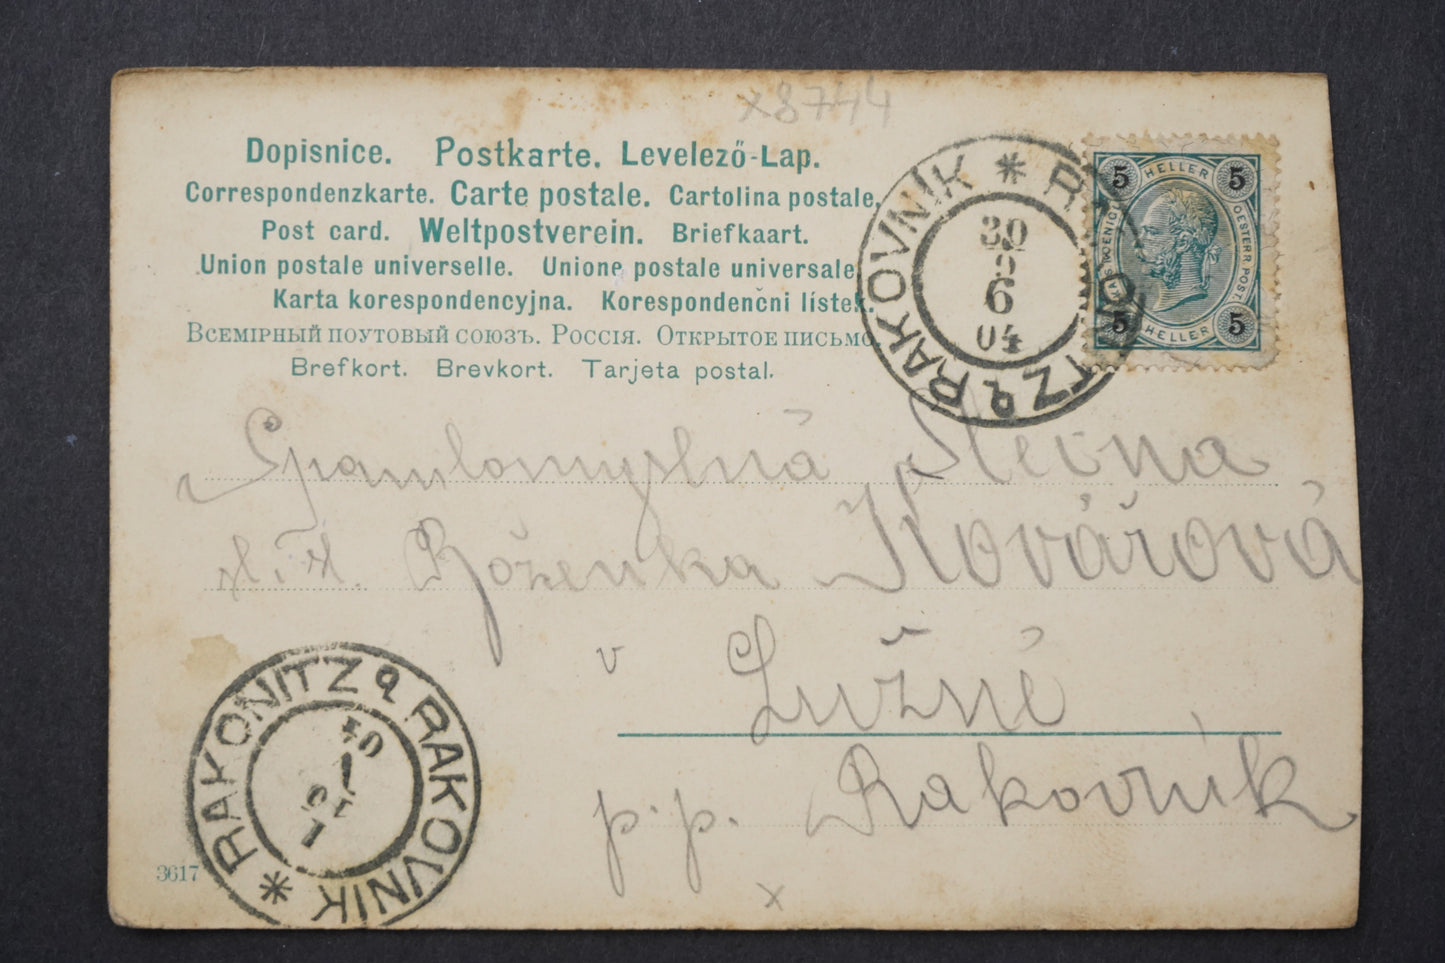 x8744
Dopisnice. Postkarte. Levelező-Lap.
Correspondenzkarte. Carte postale. Cartolina postale.
Post card. Weltpostverein. Briefkaart.
Union postale universelle. Unione postale universale
Karta korespondencyjna. Korespondenčni lístek.
Всемірный поутовый союзъ. Россія. Открытое письмо.
Brefkort. Brevkort. Tarjeta postal.
RAKOVNÍK * RAKONITZ
30
6
04
5 HELLER 5
OESTERR. POST.
5 HELLER 5
Slečna
Boženka Kovářová
v Lužné
p. p. Rakovník
x
RAKONITZ RAKOVNÍK *
3617